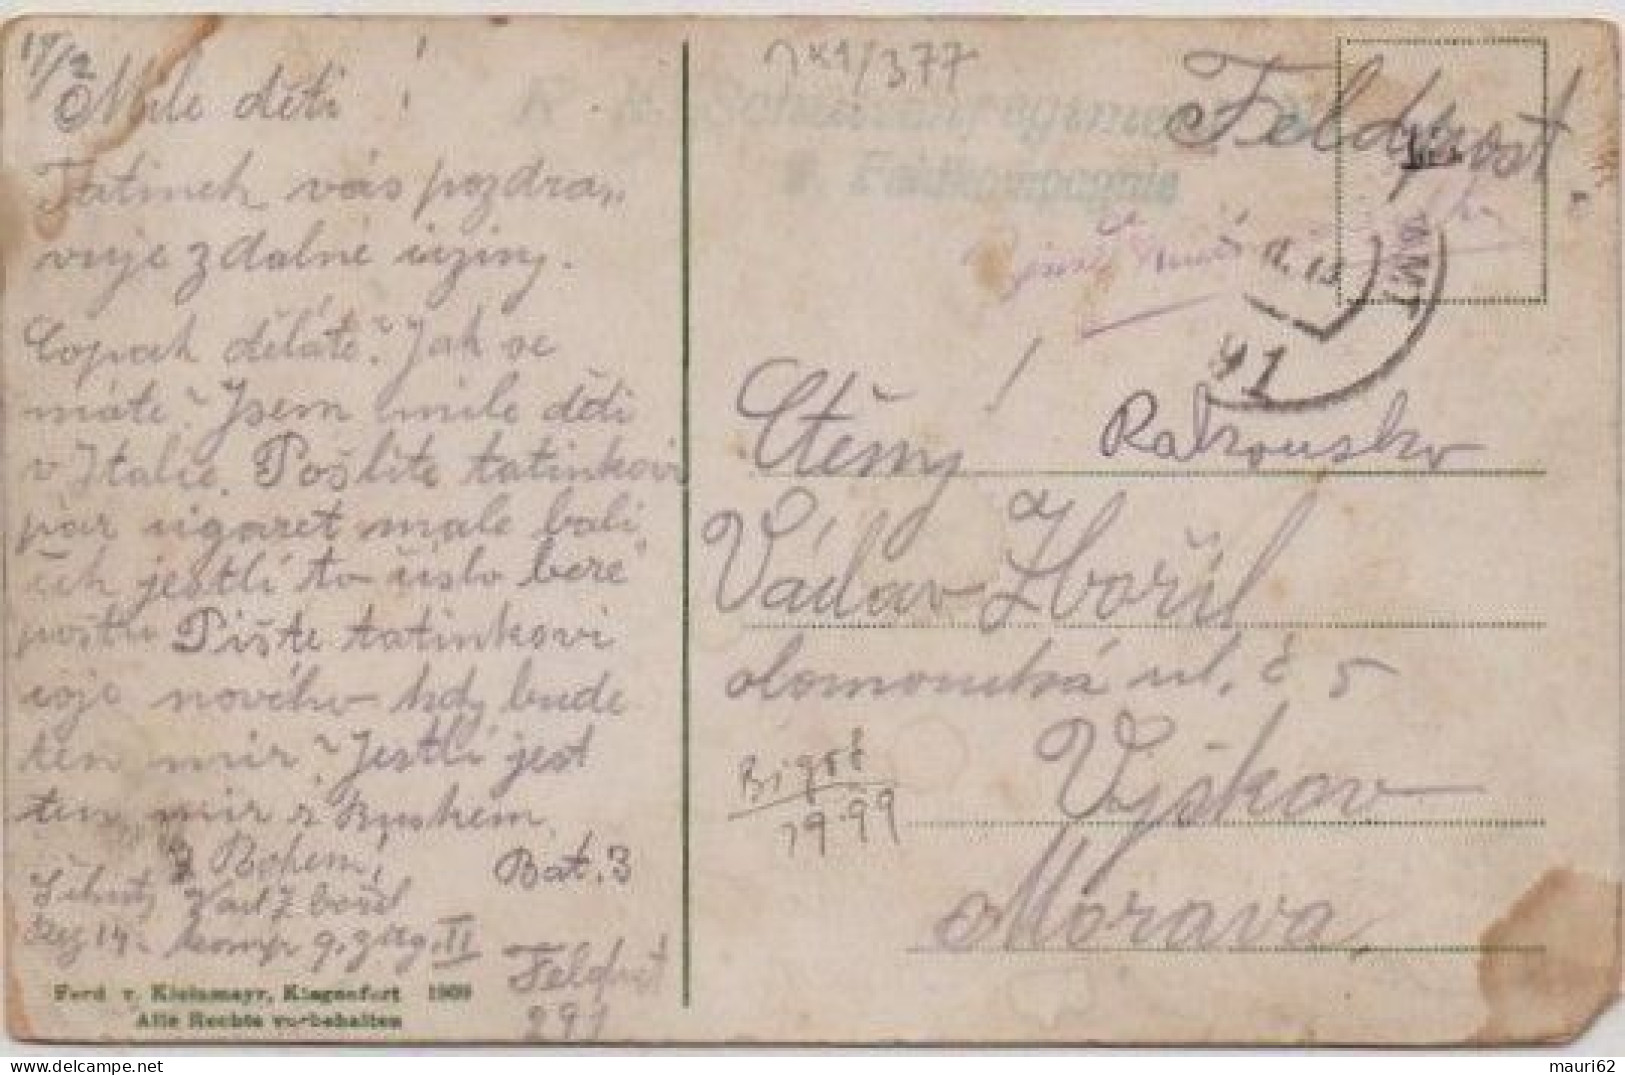 14/2
Milé děti !
Tatínek vás pozdra„
vuje z dalné ciziny.
Copak děláte? Jak se
máte? Jsem milé děti
v Italíe. Pošlíte tatínkovi
pár cigaret malé balí
ček jestlí to číslo beré
poštu Píšte tatínkovi
coje nového kdy bude
ten mír? Jestlí jest
ten mír s Ruskem
Z Bohem!
Bat. 3
Václ Zbořil
Reg 14. komp 9. zug. II
Feldpost
291
Ferd v. Kleinmayr, Klagenfurt 1909
Alle Rechte vorbehalten
/377
Feldpost.
Schützenregiment
9. Feldkompagnie
AMT
Ctěný !
Rakousko
Václav Zbořil
olomoucká ul. č 5
Vyškov
Morava
19.99
mauri62